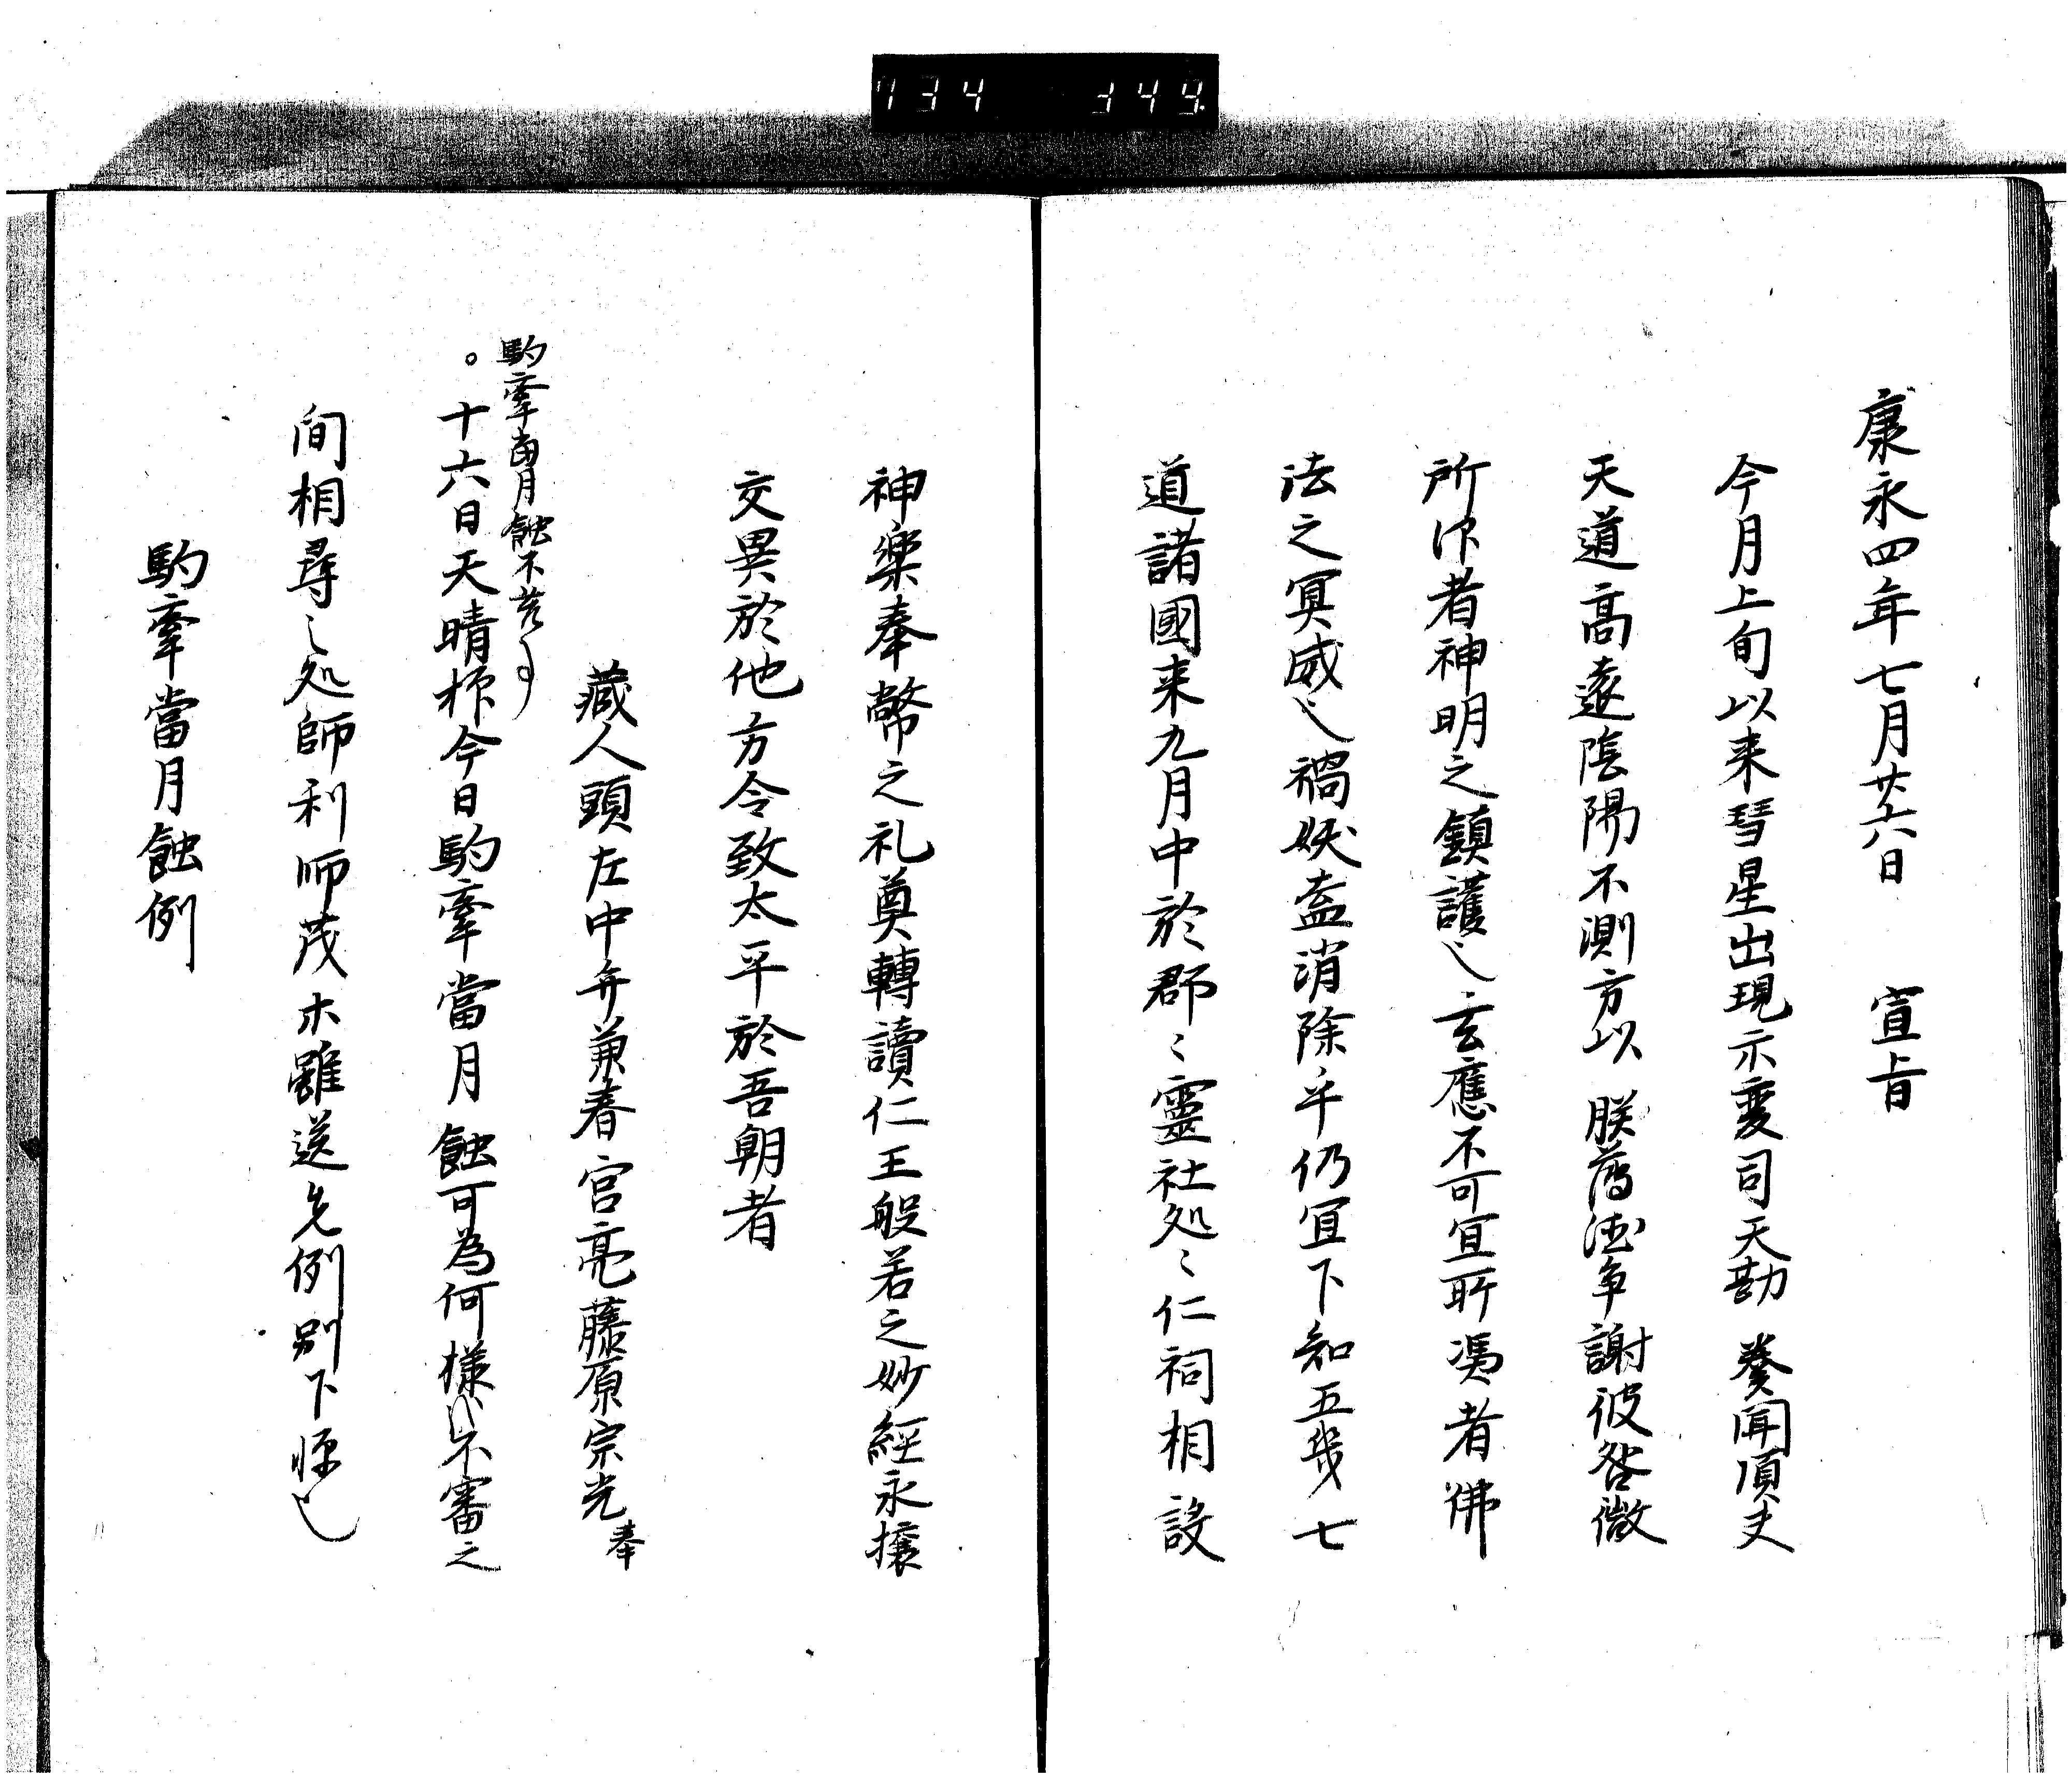 734 344
康永四年七月廿六日 宣旨
今月上旬以来彗星出現示変司天勘奏聞須丈
天道高遠陰陽不測方以朕薄徳争謝彼咎徴
所作者神明之鎮護也玄應不可宜所馮者佛
法之冥威也禍妖盍消除乎仍宜下知五畿七
道諸國来九月中於郡〻靈社処〻仁祠相設
神楽奉幣之礼奠轉讀仁王般若之妙經永攘
交異於他方令致太平於吾朝者
藏人頭左中弁兼春宮亮藤原宗光奉
駒牽當月蝕不苦事
。十六日天晴抑今日駒牽當月蝕可為何様哉不審之
間相尋之処師利師茂木雖送先例別下悰也
駒牽當月蝕例